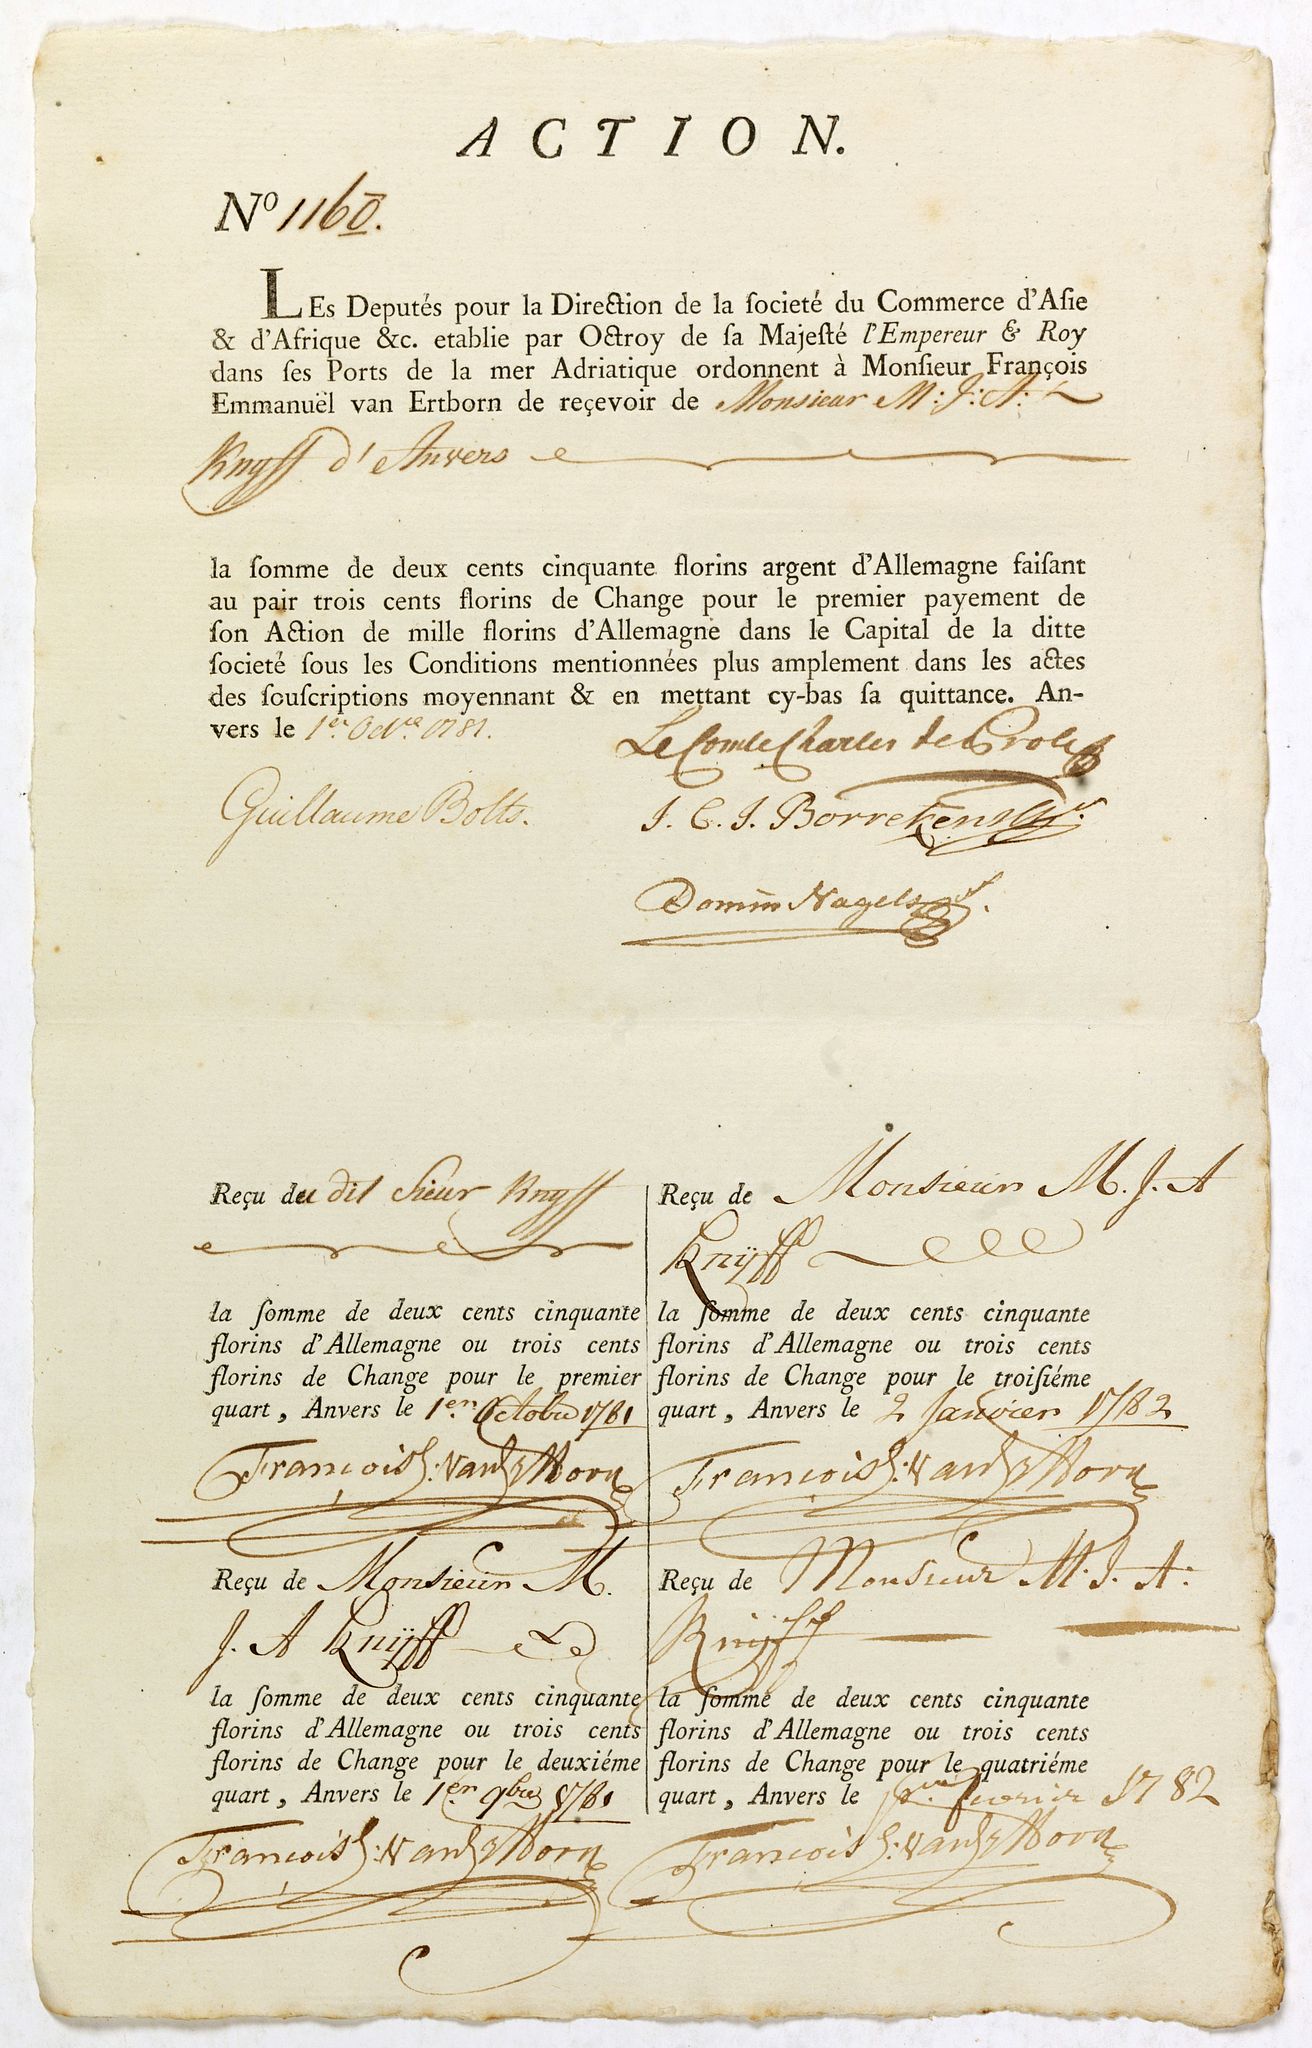 ACTION.
Nº 1160.
LEs Deputés pour la Direction de la ſocieté du Commerce d'Aſie
& d'Afrique &c. etablie par Octroy de ſa Majeſté l'Empereur & Roy
dans ſes Ports de la mer Adriatique ordonnent à Monſieur François
Emmanuël van Ertborn de reçevoir de Monsieur M: J: A:
Knyff d'Anvers
la ſomme de deux cents cinquante florins argent d'Allemagne faiſant
au pair trois cents florins de Change pour le premier payement de
ſon Action de mille florins d'Allemagne dans le Capital de la ditte
ſocieté ſous les Conditions mentionnées plus amplement dans les actes
des ſouſcriptions moyennant & en mettant cy-bas ſa quittance. An-
vers le 1er. Octre. 1781.
Le Comte Charles de Proli
Guillaume Bolts.
J. C. J. Borrekens
Domin Nagels
Reçu du dit Sieur Knyff
la ſomme de deux cents cinquante
florins d'Allemagne ou trois cents
florins de Change pour le premier
quart, Anvers le 1er. Octobre 1781
François E: van Ertborn
Reçu de Monsieur M.
J. A Knÿff
la ſomme de deux cents cinquante
florins d'Allemagne ou trois cents
florins de Change pour le deuxiéme
quart, Anvers le 1er 9bre 1781
François E: van Ertborn
Reçu de Monsieur M. J. A
Knÿff
la ſomme de deux cents cinquante
florins d'Allemagne ou trois cents
florins de Change pour le troiſiéme
quart, Anvers le 2 Janvier 1782
François E: van Ertborn
Reçu de Monsieur M. J. A:
Knÿff
la ſomme de deux cents cinquante
florins d'Allemagne ou trois cents
florins de Change pour le quatriéme
quart, Anvers le fevrier 1782
François E: van Ertborn